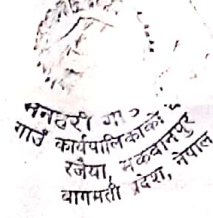 मनहरी गा
गाउँ कार्यपालिकाको
रजैया, मकवानपुर
बागमती प्रदेश, नेपाल